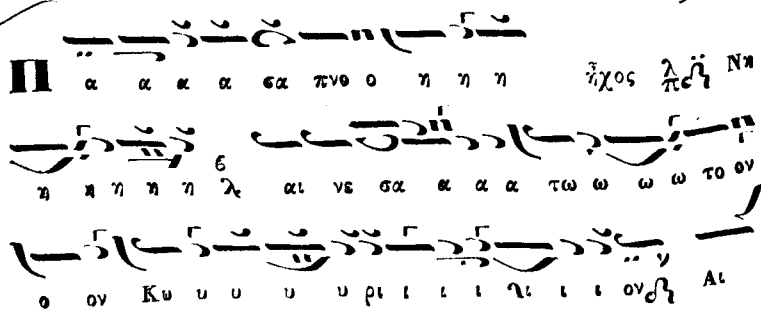 Π α α α α σα πνο ο η η η ἦχος λ π Νη
η η η η η λε αι νε σα α α α τω ω ω ω το ον
ο ον Κυ υ υ υ υ ρι ι ι ι ι ι ι ον Αι